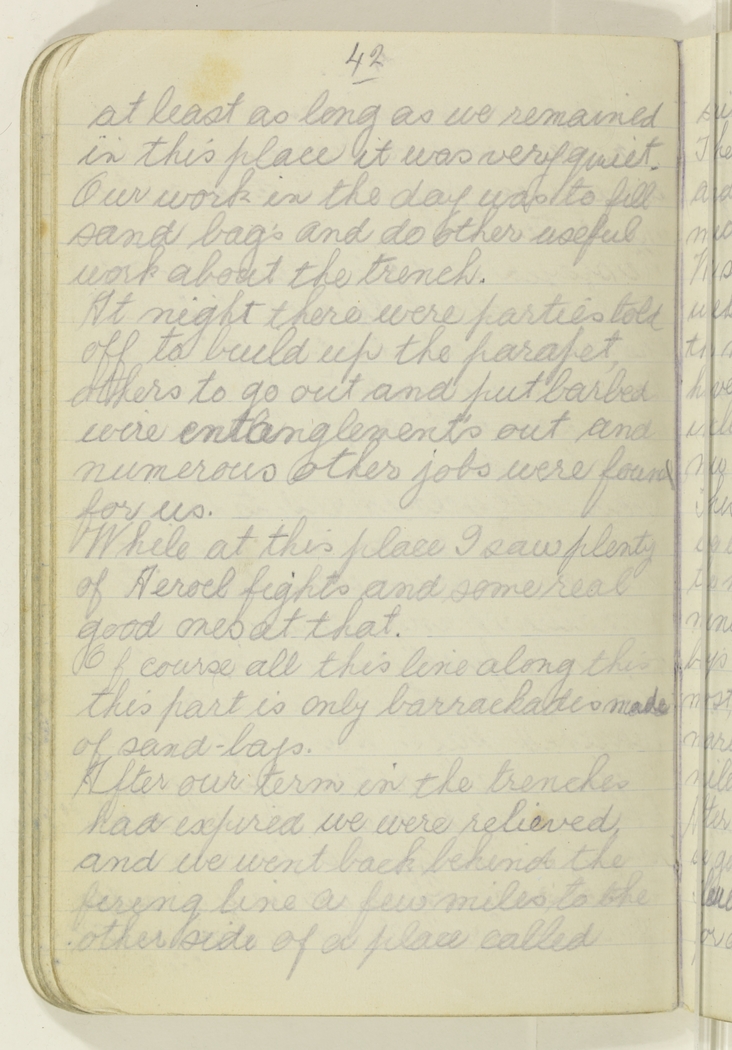 42
at least as long as we remained
in this place it was very quiet.
Our work in the day was to fill
sand bags and do other useful
work about the trench.
At night there were parties told
off to build up the parapet,
others to go out and put barbed
wire entanglements out and
numerous other jobs were found
for us.
While at this place I saw plenty
of Aeroel fights and some real
good ones at that.
Of course all this line along this
this part is only barrackades made
of sand-bags.
After our term in the trenches
had expired we were relieved,
and we went back behind the
fireng line a few miles to the
other side of a place called